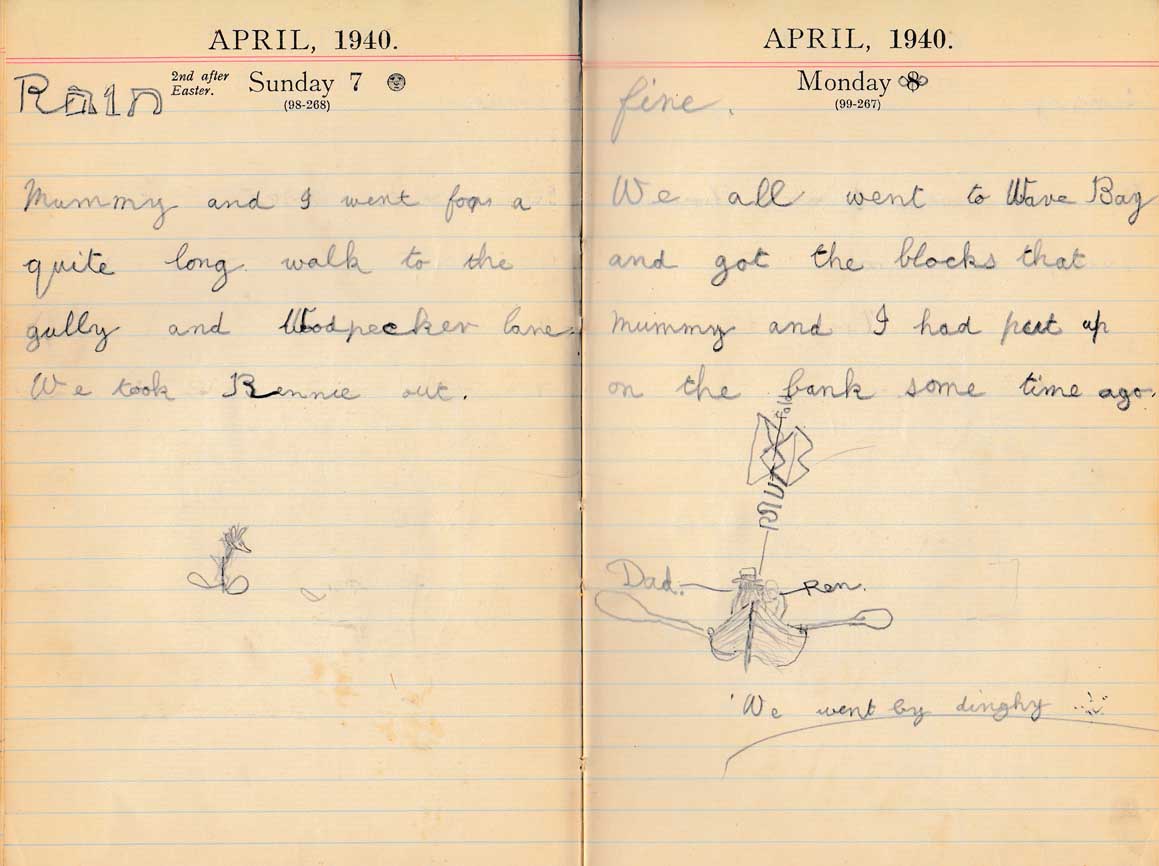 APRIL, 1940.
Rain
2nd after
Easter.
Sunday 7
(98-268)
Mummy and I went for a
quite long walk to the
gully and Woodpecker lane.
We took Rennie out.
APRIL, 1940.
Monday 8
(99-267)
fine.
We all went to Wave Bay
and got the blocks that
Mummy and I had put up
on the bank some time ago.
Dad.
Ren.
We went by dinghy